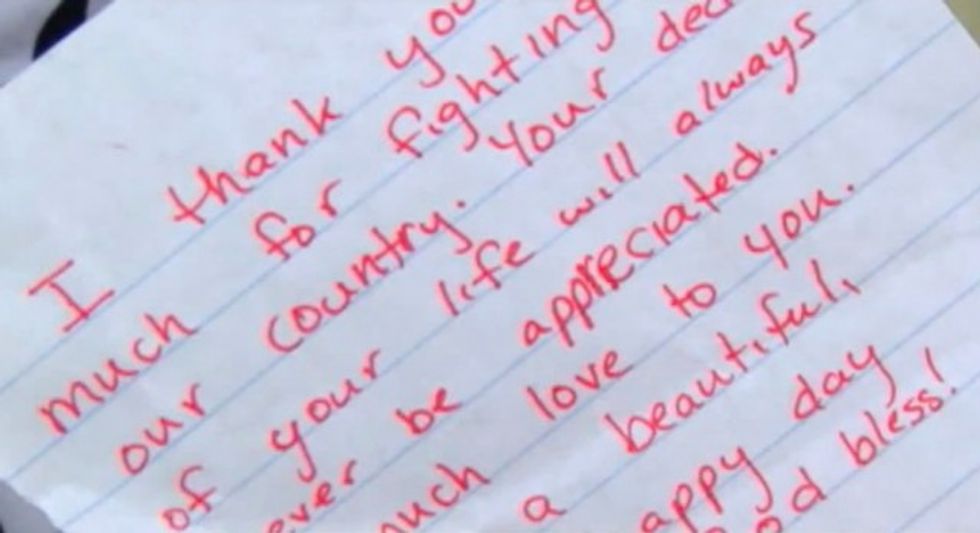 I thank you
much for fighting
our country. Your
of your life will always
ever be appreciated.
love to you.
a beautiful,
day
bless!